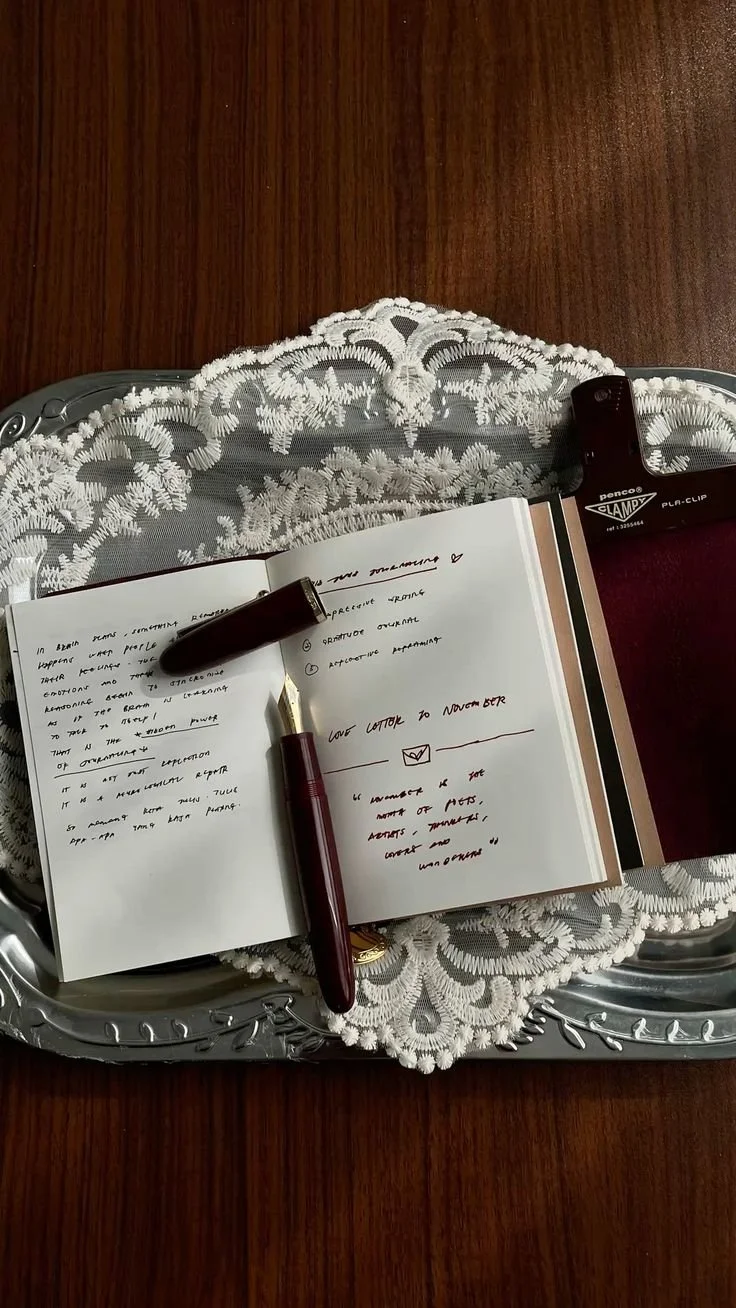 IN BRAIN SCANS, SOMETHING
HAPPENS WHEN PEOPLE
THEIR FEELINGS. THE
EMOTIONS AND
REASONING BEGIN TO SYNCHRONISE
AS IF THE BRAIN IS LEARNING
TO TALK TO ITSELF!
THAT IS THE * HIDDEN POWER
OF JOURNALING *
IT IS NOT JUST REFLECTION
IT IS A NEUROLOGICAL REPAIR
SO MEMANG KITA TULIS. TULIS
APA-APA YANG KATA
AND JOURNALING
EXPRESSIVE WRITING
② GRATITUDE JOURNAL
③ REFLECTIVE REFRAMING
LOVE LETTER TO NOVEMBER
" NOVEMBER IS THE
MONTH OF POETS,
ARTISTS, THINKERS,
LOVERS AND
WANDERERS "
penco®
CLAMPY
PLA-CLIP